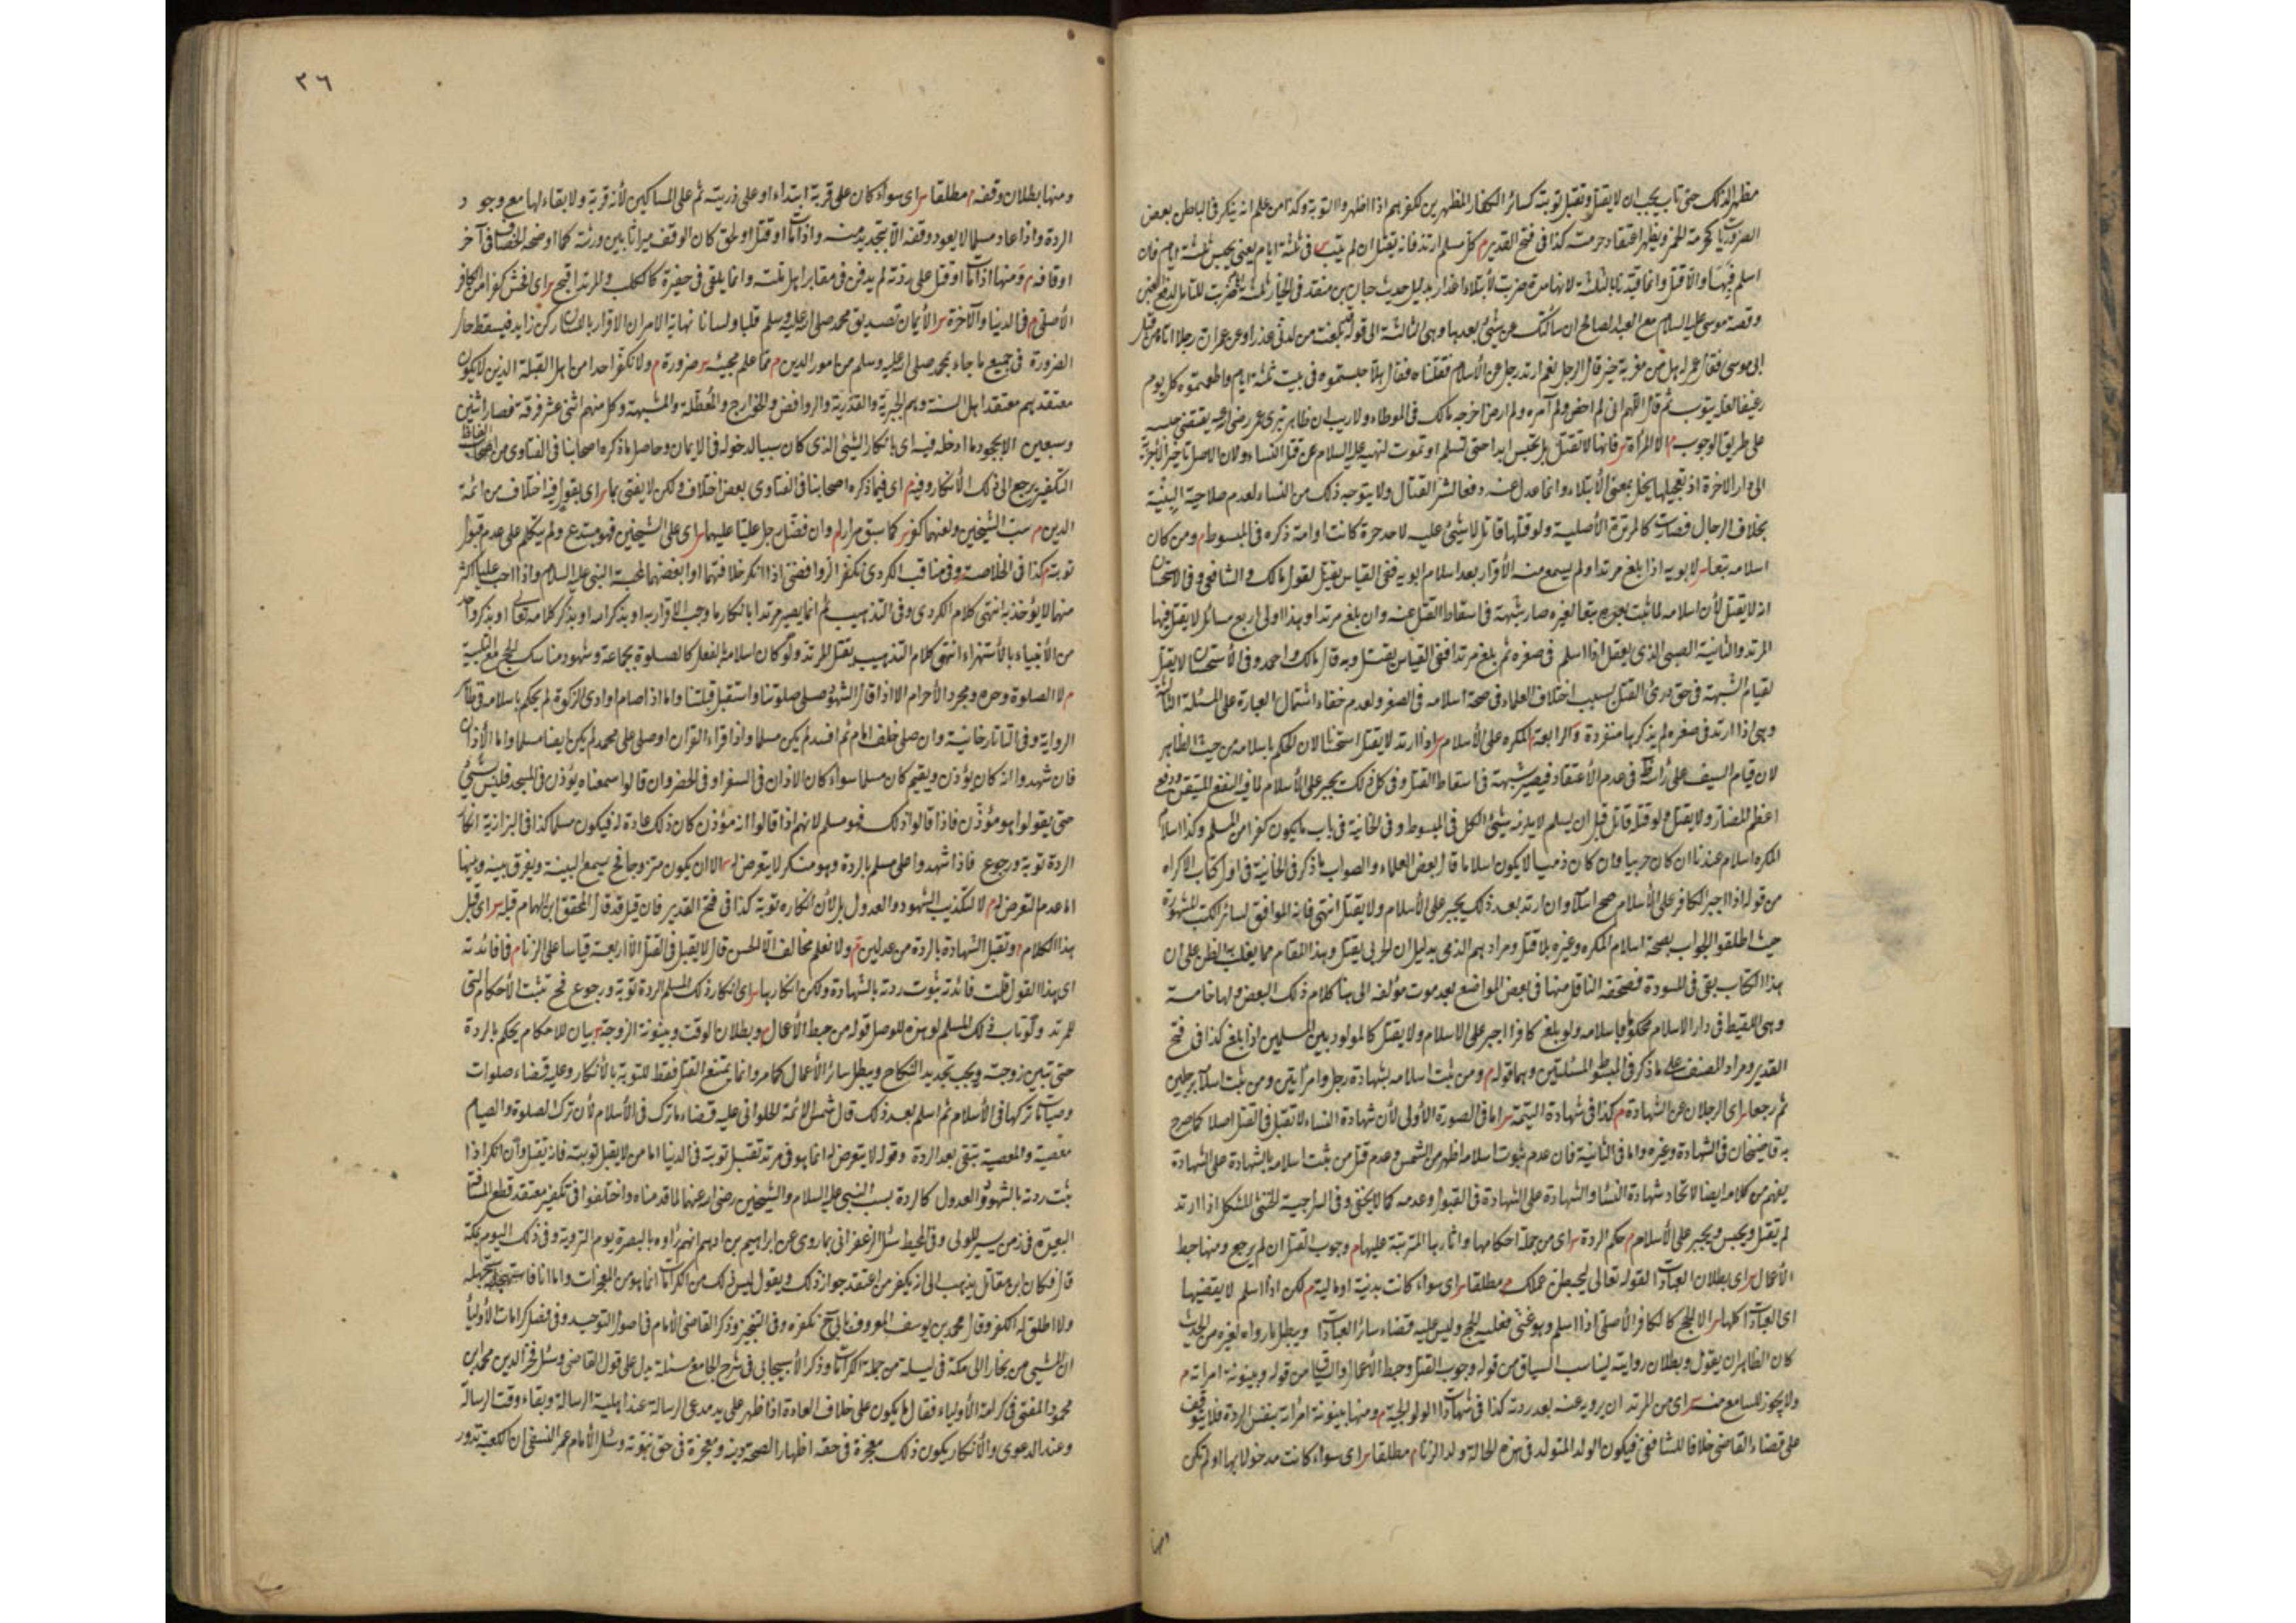 مظهرا لذلك حتى تاب يجب ان لا يقتل وتقبل توبته كسائر الكفار المظهرين لكفرهم اذا اظهروا التوبة وكذا من علم انه ينكر في الباطن بعض
الضروريات كحرمة الخمر ويظهر اعتقاد حرمته كذا في فتح القدير م كل مسلم ارتد فانه يقتل ان لم يتب س في ثلثة ايام يعني يحبس ثلثة ايام فان
اسلم فيها والا قتل وانما قيدنا بالثلثة لانها مدة ضربت لابتلاء الاعذار بدليل حديث حبان بن منقذ في الخيار ثلثة ايام ضربت للتأمل لدفع الغبن
وقصة موسى عليه السلام مع العبد الصالح ان سألتك عن شيء بعدها وهي الثالثة الى قوله بلغت من لدني عذرا وعن عمر ان رجلا اتاه من قبل
ابي موسى فقال عمر له هل من مغربة خبر قال الرجل نعم ارتد رجل عن الأسلام فقتلناه فقال هلا حبستموه في بيت ثلثة ايام واطعمتموه كل يوم
رغيفا لعله يتوب ثم قال اللهم اني لم احضر ولم آمر به ولم ارض اخرجه مالك في الموطاء ولا ريب ان ظاهر تبري عمر رضي الله عنه يقتضي حبسه
على طريق الوجوب م الا المرأة س فانها لا تقتل بل تحبس ابدا حتى تسلم او تموت لنهيه عليه السلام عن قتل النساء ولان الاصل تأخير الأجزية
الى دار الاخرة اذ تعجيلها يخل بمعنى الأبتلاء وانما عدل عنه دفعا لشر القتال ولا يتوجه ذلك من النساء لعدم صلاحية البنية
بخلاف الرجال فصارت كالمرتدة الأصلية ولو قتلها قاتل لا شيء عليه لاحد حرة كانت او امة ذكره في المبسوط م ومن كان
اسلامه تبعا س لابويه اذا بلغ مرتدا ولم يسمع منه الأقرار بعد اسلام ابويه ففي القياس يقتل لقول مالك والشافعي وفي الاستحسان
انه لا يقتل لأن اسلامه لما ثبت بطريق تبعا لغيره صار شبهة في اسقاط القتل عنه وان بلغ مرتدا وهذا اولى اربع مسائل لا يقتل فيها
المرتد والثانية الصبي الذي يعقل اذا اسلم في صغره ثم بلغ مرتدا ففي القياس يقتل وبه قال مالك واحمد وفي الأستحسان لا يقتل
لقيام الشبهة في حق درئ القتل بسبب اختلاف العلماء في صحة اسلامه في الصغر ولعدم خفاء اشتمال العبارة على المسئلة الثالثة
وهي اذا ارتد في صغره لم يذكرها منفردة والرابعة م المكره على الأسلام س اذا ارتد لا يقتل استحسانا لان الحكم باسلامه من حيث الظاهر
لان قيام السيف على رأسه ظاهر في عدم الأعتقاد فيصير شبهة في اسقاط القتل وفي كل ذلك يجبر على الأسلام لما فيه النفع المتيقن ودفع
اعظم المضار ولا يقتل ولو قتله قاتل قبل ان يسلم لا يلزمه شيء الكل في المبسوط وفي الخانية في باب ما يكون كفرا من المسلم وكذا اسلام
المكره اسلام عندنا ان كان حربيا وان كان ذميا لا يكون اسلاما قال بعض العلماء والصواب ما ذكر في الخانية في اول كتاب الاكراه
من قوله اذا اجبر الكافر على الأسلام صح اسلامه وان ارتد بعد ذلك يجبر على الأسلام ولا يقتل انتهى فانه الموافق لسائر الكتب المشهورة
حيث اطلقوا الجواب بصحة اسلام المكره وغيره بلا قتل ومرادهم الذمي بدليل ان الحربي يقتل وهذا المقام مما يغلب به الظن على ان
هذا الكتاب بقي في المسودة فصحفه الناقل منها في بعض المواضع بعد موت مؤلفه الى هنا كلام ذلك البعض ولها خامسة
وهي اللقيط في دار الاسلام محكوم باسلامه ولو بلغ كافرا اجبر على الاسلام ولا يقتل كالمولود بين المسلمين اذا بلغ كذا في فتح
القدير ومراد المصنف على ما ذكر في المبسوط المسئلتين وهما قوله م ومن ثبت اسلامه بشهادة رجل وامرأتين ومن ثبت اسلامه برجلين
ثم رجعا س اي الرجلان عن الشهادة م كذا في شهادة اليتيمة س اما في الصورة الأولى لأن شهادة النساء لا تقبل في القتل اصلا كما صرح
به قاضيخان في الشهادة وغيره واما في الثانية فان عدم ثبوت اسلامه اظهر من الشمس وعدم قتل من ثبت اسلامه بالشهادة على الشهادة
يفهم من كلامه ايضا لاتحاد شهادة النساء والشهادة على الشهادة في القبول وعدمه كما لا يخفى وفي السراجية الخنثى المشكل اذا ارتد
لم يقتل ويحبس ويجبر على الأسلام م حكم الردة س اي من جملة احكامها واثارها المترتبة عليها م وجوب القتل ان لم يرجع ومنها حبط
الأعمال س اي بطلان العبادات لقوله تعالى ليحبطن عملك م مطلقا س اي سواء كانت بدنية او مالية م لكن اذا اسلم لا يقضيها
اي العبادات كلها س الا الحج كالكافر الأصلي اذا اسلم وهو غني فعليه الحج وليس عليه قضاء سائر العبادات ويبطل ما رواه لغيره من الحديث
كان الظاهر ان يقول وبطلان روايته ليناسب السياق من قوله وجوب القتل وحبط الأعمال والسباق من قوله وبينونة امرأته م
ولا يجوز للسامع منه س اي من المرتد ان يرويه عنه بعد ردته كذا في شهادات الولوالجية م ومنها بينونة امرأته بنفس الردة فلا يتوقف
على قضاء القاضي خلافا للشافعي فيكون الولد المتولد في هذه الحالة ولد الزنا م مطلقا س اي سواء كانت مدخولا بها او لم تكن
ومنها
٢٦
ومنها بطلان وقفه م مطلقا س اي سواء كان على قربة ابتداء او على ذريته ثم على المساكين لأنه قربة ولا بقاء لها مع وجود
الردة واذا عاد مسلما لا يعود وقفه الا بتجديد منه واذا مات او قتل او لحق كان الوقف ميراثا بين ورثته كما اوضحه الخصاف في آخر
اوقافه م ومنها اذا مات او قتل على ردته لم يدفن في مقابر اهل ملته وانما يلقى في حفيرة كالكلب والمرتد اقبح س اي افحش كفرا من الكافر
الأصلي م في الدنيا والآخرة س الأيمان تصديق محمد صلى الله عليه وسلم قلبا ولسانا نهاية الامر ان الاقرار باللسان ركن زايد فيسقط حال
الضرورة في جميع ما جاء به محمد صلى الله عليه وسلم من امور الدين م مما علم مجيئه س ضرورة م ولا نكفر احدا من اهل القبلة الذين لا يكون
معتقدهم معتقد اهل السنة وهم الجبرية والقدرية والروافض والخوارج والمعطلة والمشبهة وكل منهم اثنى عشر فرقة فصار اثنين
وسبعين الا بجحود ما ادخله فيه اي بانكار الشيء الذي كان سببا لدخوله في الايمان وحاصل ما ذكره اصحابنا في الفتاوى من الفاظ
التكفير يرجع الى ذلك الأنكار وفيه م اي فيما ذكره اصحابنا في الفتاوى بعض اختلاف ولكن لا يفتى بما س اي بقول فيه اختلاف من ائمة
الدين م سب الشيخين ولعنهما كفر س كما سبق مرارا م وان فضل رجل عليا عليهما س اي على الشيخين فهو مبتدع ولم يتكلم على عدم قبول
توبته م كذا في الخلاصة وفي مناقب الكردي نكفر الروافض اذا انكر خلافتهما او ابغضهما لمحبة النبي عليه السلام واذا احب عليا اكثر
منهما لا يؤخذ به انتهى كلام الكردي وفي التذهيب ثم انما يصير مرتدا بانكار ما وجب الاقرار به او بذكر الله او بذكر كلامه تعالى او بذكر واحد
من الأنبياء بالأستهزاء انتهى كلام التذهيب يقتل المرتد ولو كان اسلامه بالفعل كالصلوة بجماعة وشهود مناسك الحج مع التلبية
م لا الصلوة وحده ومجرد الأحرام الا اذا قال الشهود صلى صلوتنا واستقبل قبلتنا واما اذا صام او ادى الزكوة لم يحكم باسلامه في ظاهر
الرواية وفي التاتارخانية وان صلى خلف امام ثم افسد لم يكن مسلما واذا قراء القرآن او صلى على محمد لم يكن ايضا مسلما واما الأذان
فان شهدوا انه كان يؤذن ويقيم كان مسلما سواء كان الاذان في السفر او في الحضر وان قالوا سمعناه يؤذن في المسجد فليس بشيء
حتى يقولوا هو مؤذن فاذا قالوا ذلك فهو مسلم لانهم اذا قالوا انه مؤذن كان ذلك عادة له فيكون مسلما كذا في البزازية انكار
الردة توبة ورجوع فاذا شهدوا على مسلم بالردة وهو منكر لا يتعرض له س الا ان يكون متزوجا فح يسمع البينة ويفرق بينه وبينها
اما عدم التعرض له م لا لتكذيب الشهود والعدول بل لأن انكاره توبة كذا في فتح القدير فان قيل قد قال المحقق ابن الهمام قبله س اي قبل
هذا الكلام م وتقبل الشهادة بالردة من عدلين م ولا نعلم مخالفا الا الحسن قال لا يقبل في القتل الا اربعة قياسا على الزنا م فما فائدته
اي هذا القول قلت فائدته ثبوت ردته بالشهادة ولكن انكارها س اي انكار ذلك المسلم الردة توبة ورجوع فح تثبت الأحكام التي
للمرتد ولو تاب ذلك المسلم لو هذه للوصل قوله من حبط الأعمال م وبطلان الوقف وبينونة الزوجة س بيان للاحكام يحكم بالردة
حتى تبين زوجته ويجب تجديد النكاح ويبطل سائر الأعمال كما مر وانما يمتنع القتل فقط للتوبة بالأنكار وعليه قضاء صلوات
وصيامات تركها في الأسلام ثم اسلم بعد ذلك قال شمس الائمة الحلواني عليه قضاء ما ترك في الأسلام لأن ترك الصلوة والصيام
معصية والمعصية تبقى بعد الردة وقوله لا يتعرض له انما هو في مرتد تقبل توبته في الدنيا اما من لا يقبل توبته فانه يقتل وان انكر اذا
ثبت ردته بالشهود العدول كالردة بسب النبي عليه السلام والشيخين رضي الله عنهما لما قدمناه واختلفوا في تكفير معتقد قطع المسافة
البعيدة في زمن يسير للولي وفي المحيط سئل الزعفراني بما روى عن ابراهيم بن ادهم انهم رأوه بالبصرة يوم التروية وفي ذلك اليوم بمكة
قال فكان ابن مقاتل يذهب الى انه يكفر من اعتقد جواز ذلك ويقول ليس ذلك من الكرامات انما هو من المعجزات واما انا فاستجهله
ولا اطلق له الكفر وقال محمد بن يوسف المعروف بابي ح نكفره وفي التنجيز وذكر القاضي الأمام في اصول التوحيد وفي فصل كرامات الأولياء
ان المشي من بخارا الى مكة في ليلة من جملة الكرامات وذكر الأسبيجابي في شرح الجامع مسئلة يدل على قول القاضي وسئل فخر الدين محمد ابن
محمود المفتي في كرامة الأولياء فقال ما يكون على خلاف العادة اذا ظهر على يد مدعي الرسالة عند اهلية الرسالة وبقاء وقت الرسالة
وعند الدعوى والأنكار يكون ذلك معجزة في حقه اظهارا لصحة دينه ومعجزة في حق نبوته وسئل الأمام عمر النسفي ان الكعبة تدور